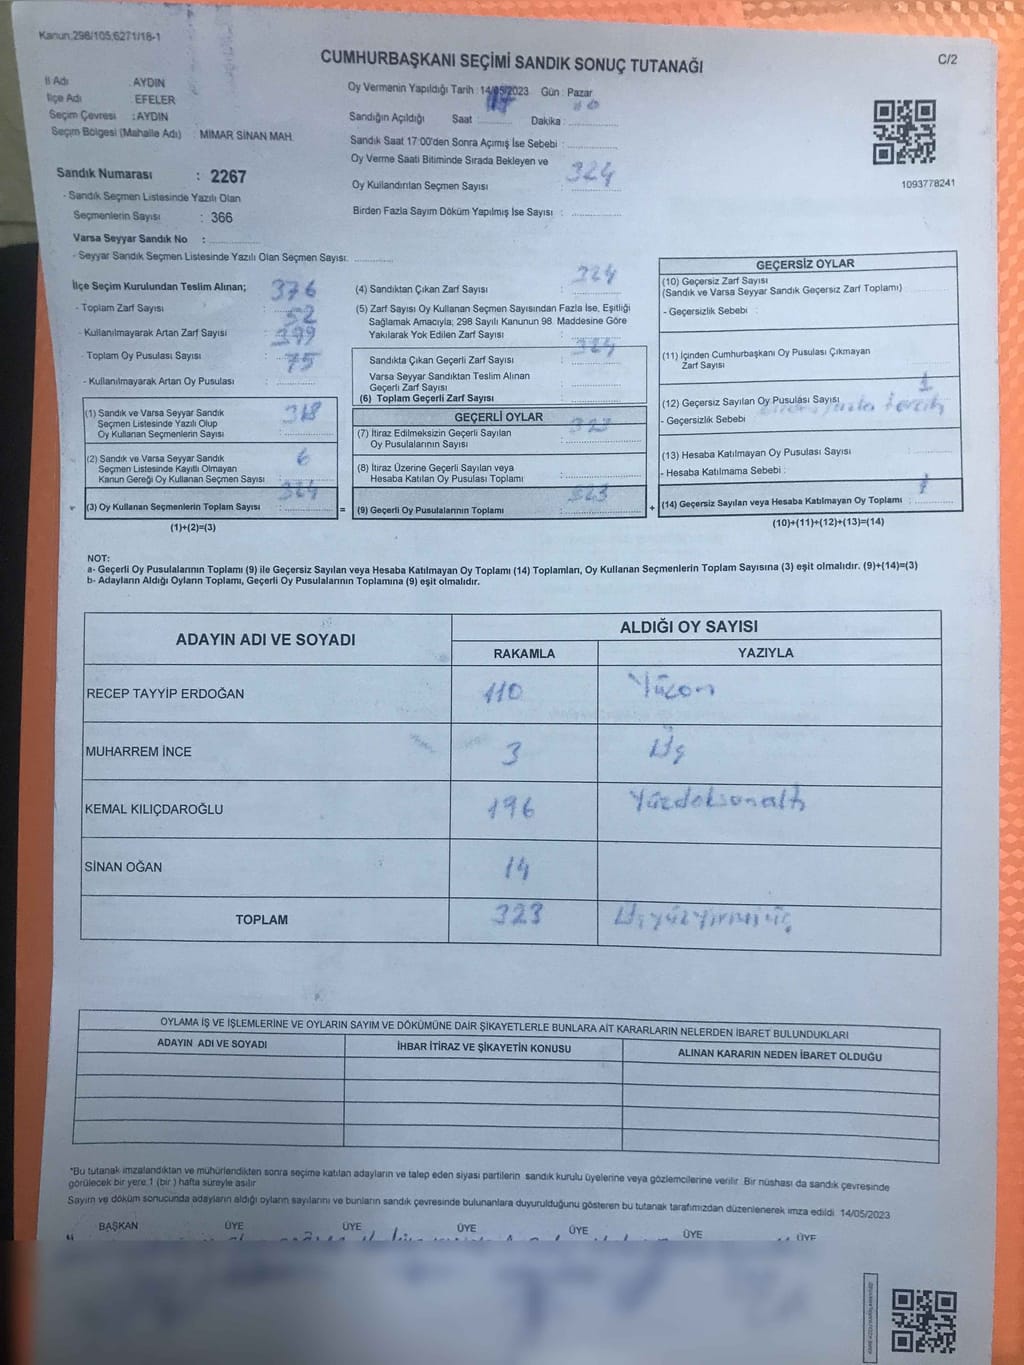 Kanun;298/105;6271/18-1
CUMHURBAŞKANI SEÇİMİ SANDIK SONUÇ TUTANAĞI
C/2
İl Adı : AYDIN
İlçe Adı : EFELER
Seçim Çevresi : AYDIN
Seçim Bölgesi (Mahalle Adı) : MİMAR SİNAN MAH.
Sandık Numarası : 2267
- Sandık Seçmen Listesinde Yazılı Olan
Seçmenlerin Sayısı : 366
Varsa Seyyar Sandık No :
- Seyyar Sandık Seçmen Listesinde Yazılı Olan Seçmen Sayısı:
Oy Vermenin Yapıldığı Tarih : 14/05/2023 Gün : Pazar
Sandığın Açıldığı Saat 17 Dakika : 00
Sandık Saat 17:00'den Sonra Açımış İse Sebebi :
Oy Verme Saati Bitiminde Sırada Bekleyen ve
Oy Kullandırılan Seçmen Sayısı : 324
Birden Fazla Sayım Döküm Yapılmış İse Sayısı :
1093778241
İlçe Seçim Kurulundan Teslim Alınan;
- Toplam Zarf Sayısı : 376
- Kullanılmayarak Artan Zarf Sayısı : 52
- Toplam Oy Pusulası Sayısı : 399
- Kullanılmayarak Artan Oy Pusulası : 75
(1) Sandık ve Varsa Seyyar Sandık
Seçmen Listesinde Yazılı Olup
Oy Kullanan Seçmenlerin Sayısı : 318
(2) Sandık ve Varsa Seyyar Sandık
Seçmen Listesinde Kayıtlı Olmayan
Kanun Gereği Oy Kullanan Seçmen Sayısı : 6
(3) Oy Kullanan Seçmenlerin Toplam Sayısı : 324
(1)+(2)=(3)
(4) Sandıktan Çıkan Zarf Sayısı : 324
(5) Zarf Sayısı Oy Kullanan Seçmen Sayısından Fazla İse, Eşitliği
Sağlamak Amacıyla; 298 Sayılı Kanunun 98. Maddesine Göre
Yakılarak Yok Edilen Zarf Sayısı :
Sandıkta Çıkan Geçerli Zarf Sayısı : 324
Varsa Seyyar Sandıktan Teslim Alınan
Geçerli Zarf Sayısı
(6) Toplam Geçerli Zarf Sayısı :
GEÇERLİ OYLAR
(7) İtiraz Edilmeksizin Geçerli Sayılan
Oy Pusulalarının Sayısı : 323
(8) İtiraz Üzerine Geçerli Sayılan veya
Hesaba Katılan Oy Pusulası Toplamı :
= (9) Geçerli Oy Pusulalarının Toplamı : 323
GEÇERSİZ OYLAR
(10) Geçersiz Zarf Sayısı
(Sandık ve Varsa Seyyar Sandık Geçersiz Zarf Toplamı) :
- Geçersizlik Sebebi :
(11) İçinden Cumhurbaşkanı Oy Pusulası Çıkmayan
Zarf Sayısı
(12) Geçersiz Sayılan Oy Pusulası Sayısı : 1
- Geçersizlik Sebebi : tercih
(13) Hesaba Katılmayan Oy Pusulası Sayısı :
- Hesaba Katılmama Sebebi :
+ (14) Geçersiz Sayılan veya Hesaba Katılmayan Oy Toplamı : 1
(10)+(11)+(12)+(13)=(14)
NOT:
a- Geçerli Oy Pusulalarının Toplamı (9) ile Geçersiz Sayılan veya Hesaba Katılmayan Oy Toplamı (14) Toplamları, Oy Kullanan Seçmenlerin Toplam Sayısına (3) eşit olmalıdır. (9)+(14)=(3)
b- Adayların Aldığı Oyların Toplamı, Geçerli Oy Pusulalarının Toplamına (9) eşit olmalıdır.
ADAYIN ADI VE SOYADI
ALDIĞI OY SAYISI
RAKAMLA YAZIYLA
RECEP TAYYİP ERDOĞAN 110 Yüzon
MUHARREM İNCE 3 Üç
KEMAL KILIÇDAROĞLU 196 Yüzdoksanaltı
SİNAN OĞAN 14
TOPLAM 323 Üçyüzyirmiüç
OYLAMA İŞ VE İŞLEMLERİNE VE OYLARIN SAYIM VE DÖKÜMÜNE DAİR ŞİKAYETLERLE BUNLARA AİT KARARLARIN NELERDEN İBARET BULUNDUKLARI
ADAYIN ADI VE SOYADI İHBAR İTİRAZ VE ŞİKAYETİN KONUSU ALINAN KARARIN NEDEN İBARET OLDUĞU
*Bu tutanak imzalandıktan ve mühürlendikten sonra seçime katılan adayların ve talep eden siyasi partilerin sandık kurulu üyelerine veya gözlemcilerine verilir. Bir nüshası da sandık çevresinde
görülecek bir yere 1 (bir ) hafta süreyle asılır
Sayım ve döküm sonucunda adayların aldığı oyların sayılarını ve bunların sandık çevresinde bulunanlara duyurulduğunu gösteren bu tutanak tarafımızdan düzenlenerek imza edildi. 14/05/2023
BAŞKAN ÜYE ÜYE ÜYE ÜYE ÜYE ÜYE